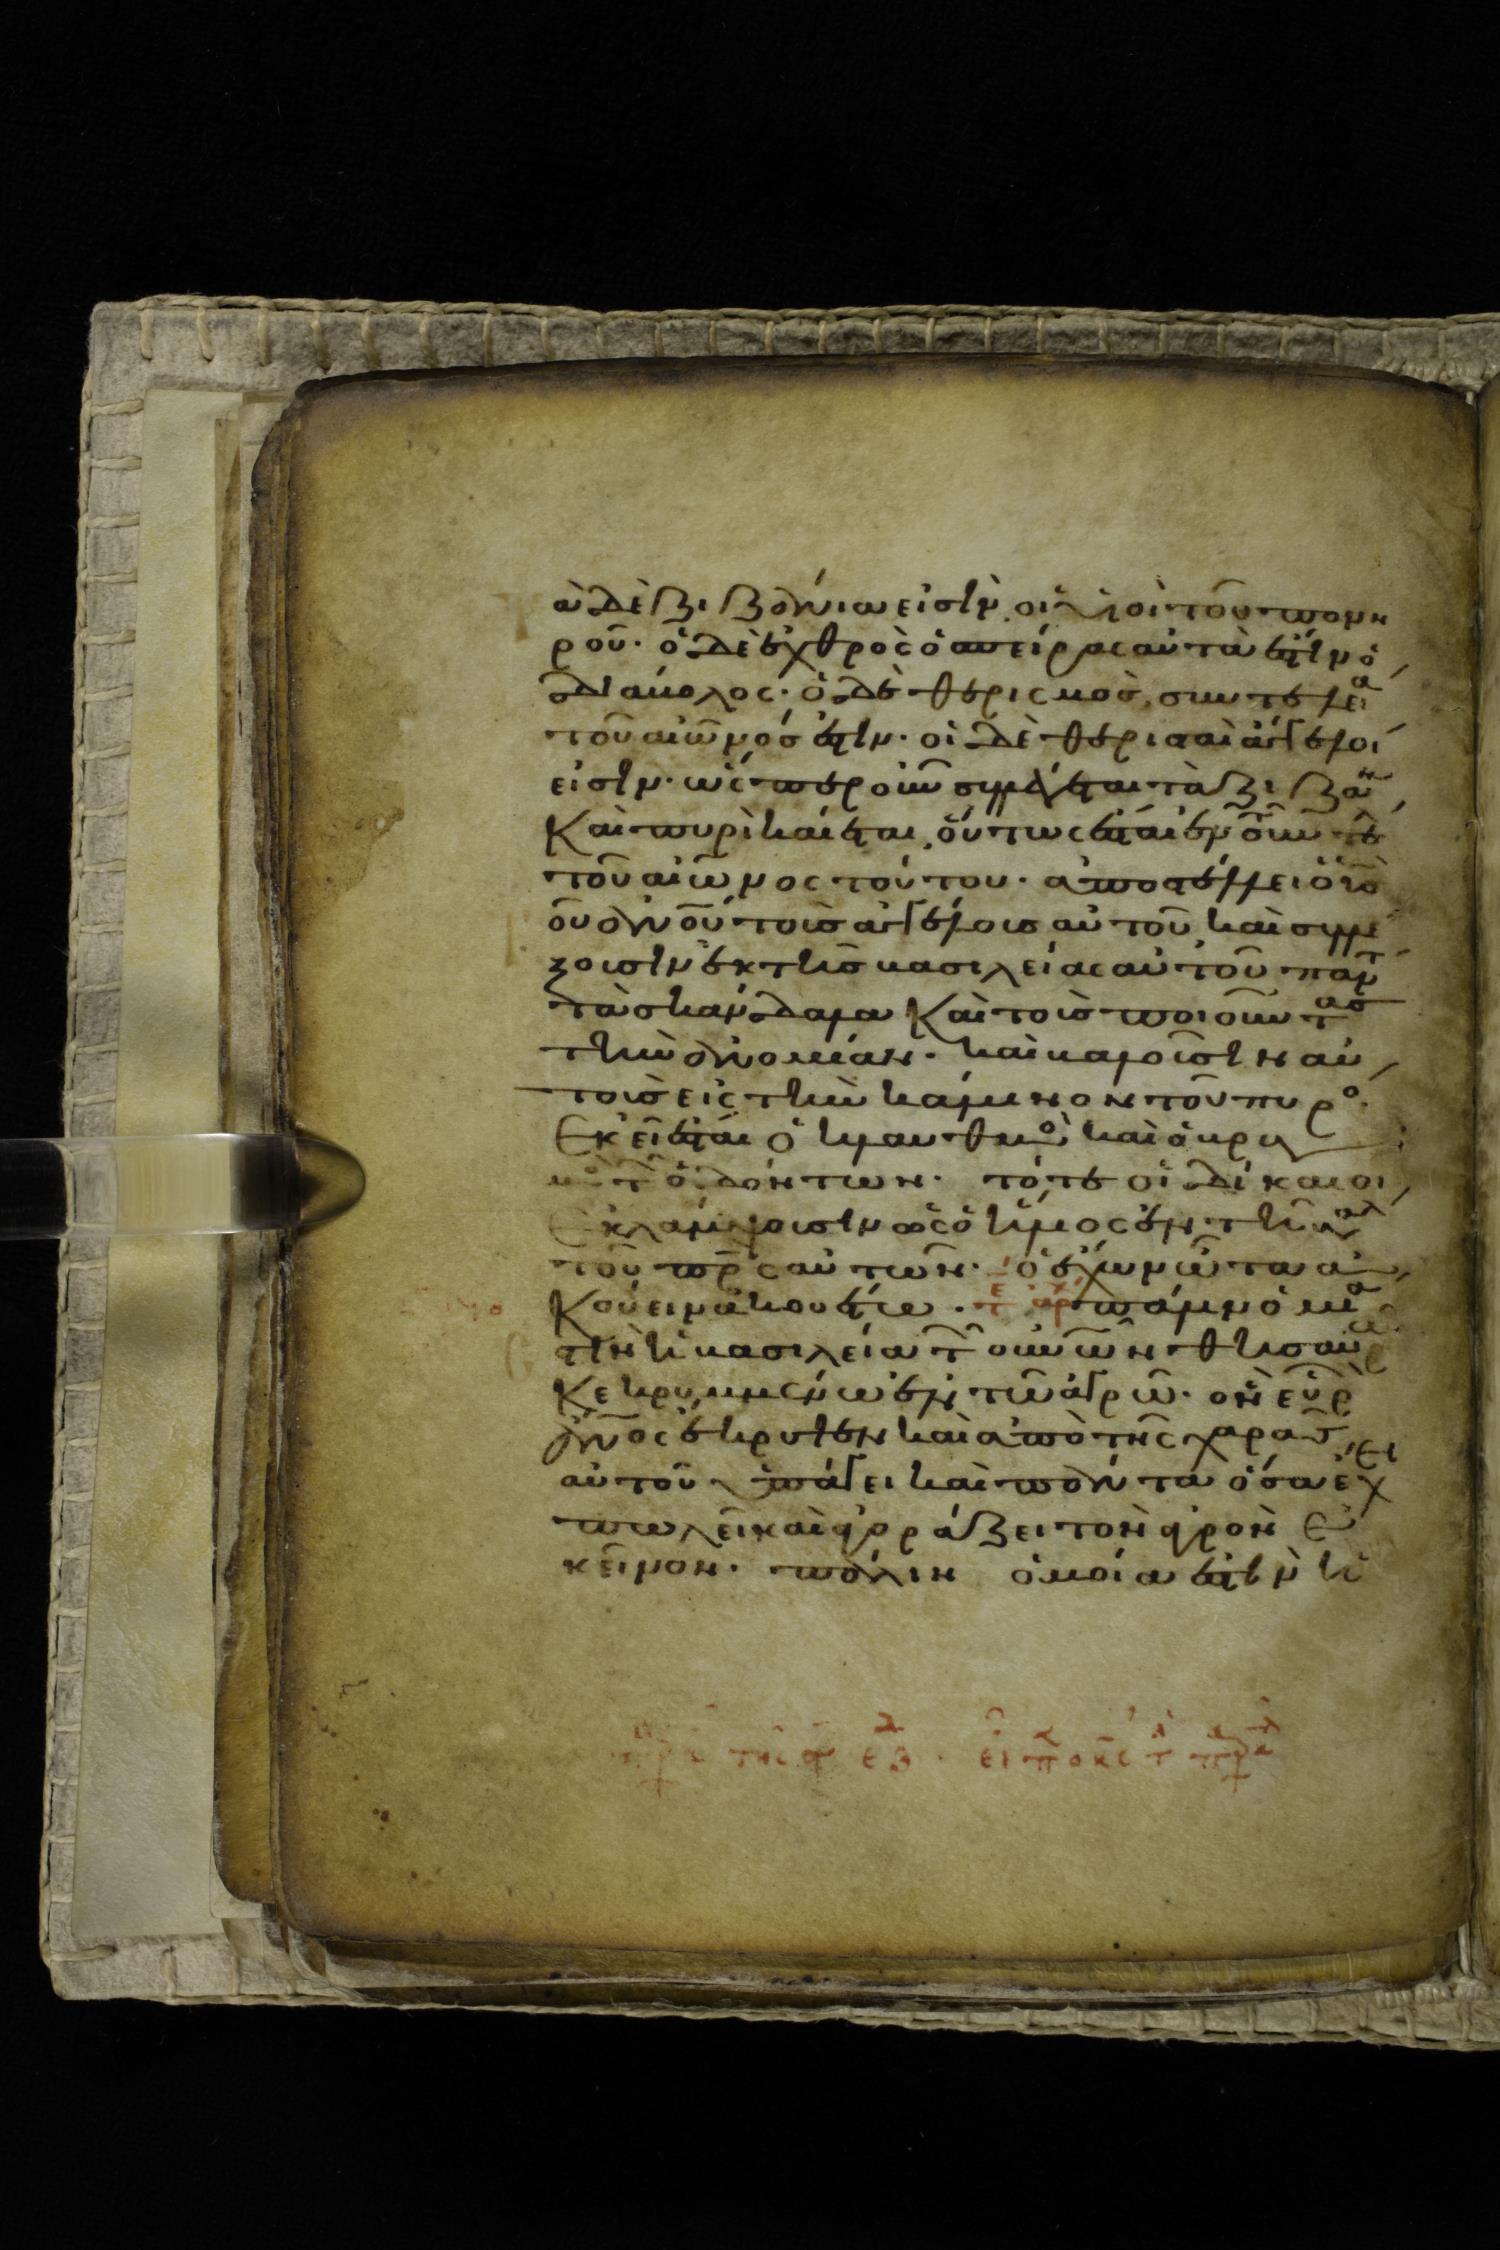 ὰ δὲ ζιζάνια εἰσὶν οἱ υἱοὶ τοῦ πονη
ροῦ· ὁ δὲ ἐχθρὸς ὁ σπείρας αὐτὰ ἐστὶν ὁ
διάβολος· ὁ δὲ θερισμὸς, συντελεια
τοῦ αἰῶνός ἐστιν· οἱ δὲ θερισταὶ ἄγγελοι
εἰσὶν· ὥσπερ οὖν συλλέγεται τὰ ζιζαν
Καὶ πυρὶ καίεται, οὕτως ἔσται ἐν τ συντε
τοῦ αἰῶνος τούτου· ἀποστελλει ὁ υσ
οῦ ανοῦ τοὺς ἀγγέλους αὐτοῦ καὶ συλλε
ξουσὶν ἐκ τῆς βασιλείας αὐτοῦ παντ
τὰ σκάνδαλα Καὶ τοὺς ποιοῦντας
τὴν ἀνομίαν· καὶ βαλοῦσιν αὐ
τοὺς εἰς τὴν κάμινον τοῦ πυρο
Εκεῖ ἔσται ὁ κλαυθμο καὶ ὁ βρυγ
μο τ ὀδόντων· τότε οἱ δίκαιοι
Εκλάμψουσιν ὡς ὁ ἥλιος ἐν τῆ βασλ
τοῦ πρς αὐτῶν· ὁ ἔχων ὦτα α
Κούειν ἀκουέτω· πάλιν ὁμοια
στὶν ἡ βασιλεία τ οὐνῶν θησαυρ
Κεκρυμμένω ἐν τῶ ἀγρῶ· ὃν εὑρ
ἄνος ἔκρυψεν καὶ ἀπὸ τῆς χαρασ
αὐτοῦ ὑπάγει καὶ πάντα ὅσα ἔχει
πωλεῖ καὶ ἀγοράζει τὸν ἀγρὸν Ε
κεῖνον· πάλιν ὁμοία ἐστὶν ἡ